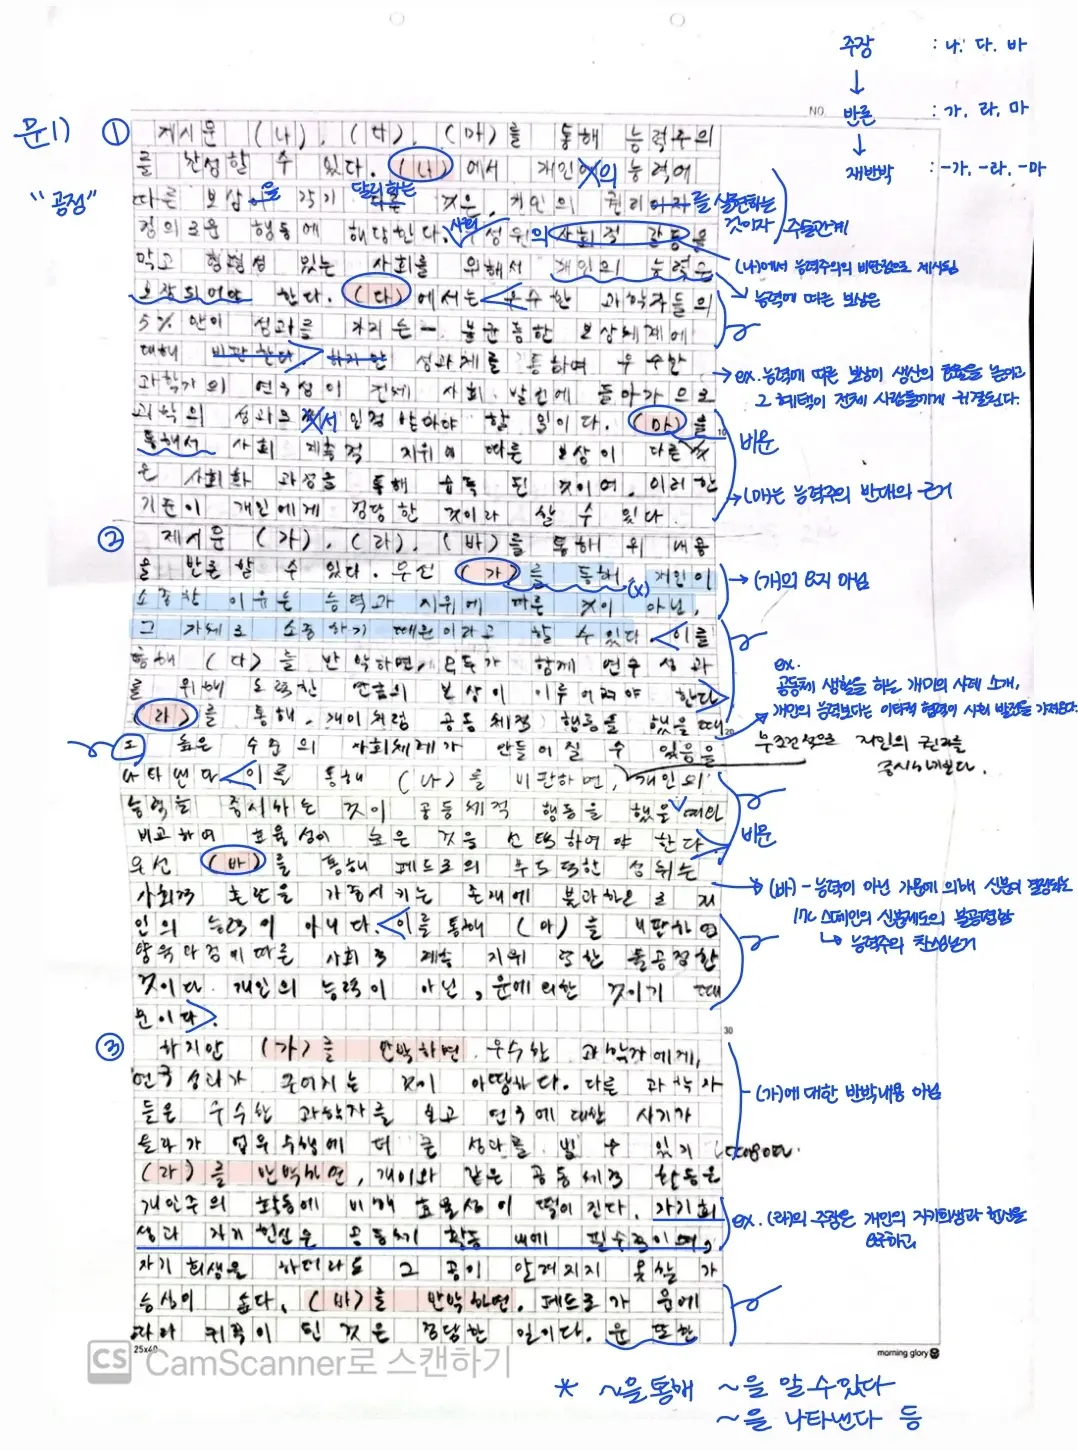 주장 : 나. 다. 바
반론 : 가. 라. 마
재반박 : -가. -라. -마
NO.
문1) ①
"공정"
제시문 (나), (다), (마)를 통해 능력주의
를 찬성할 수 있다. (나)에서 개인의 능력에
따른 보상을 각기 달리하는 것은, 개인의 권리를 실현하는 것이자
주술관계
정의로운 행동에 해당한다. 사회 구성원의 사회적 갈등을
막고 형평성 있는 사회를 위해서 개인의 능력은
(나)에서 능력주의의 비판점으로 제시됨
보장되어야 한다. (다)에서는 우수한 과학자들의
능력에 따른 보상은
5% 만이 성과를 가지는 불균등한 보상체제에
대해 비판한다. 하지만 성과제를 통하여 우수한
ex. 능력에 따른 보상이 생산의 효율을 높이고
그 혜택이 전체 사람들에게 귀결된다.
과학자의 연구성이 전체 사회 발전에 돌아가므로
과학의 성과로서 인정 받아야 할 일이다. (마)를
10
비문
통해서 사회 계층적 지위에 따른 보상이 다른 것
은 사회화 과정을 통해 습득 된 것이며, 이러한
(마)는 능력주의 반대의 근거
기준이 개인에게 정당한 것이라 할 수 있다.
② 제시문 (가), (라), (바)를 통해 위 내용
을 반론할 수 있다. 우선 (가)를 통해, 개인이
(x)
소중한 이유는 능력과 지위에 따른 것이 아닌,
그 자체로 소중하기 때문이라고 할 수 있다. 이를
통해 (다)를 반박하면, 모두가 함께 연구 성과
를 위해 노력한 만큼의 보상이 이루어져야 한다.
ex.
공동체 생활을 하는 개미의 사례 소개,
개인의 능력보다는 이타적 협력이 사회 발전을 가져온다.
(라)를 통해, 개미처럼 공동체적 행동을 했을 때
20
도 높은 수준의 사회체계가 만들어질 수 있음을
무조건적으로 개인의 권리를
중시하게된다.
나타낸다. 이를 통해 (나)를 비판하면, 개인의
능력을 중시하는 것이 공동체적 행동을 했을 때와
비교하여 효율성이 높은 것을 선택하여야 한다.
비문
우선 (바)를 통해 페드로의 부도덕한 성취는
사회적 혼란을 가중시키는 존재에 불과하므로 개
(바) - 능력이 아닌 가문에 의해 신분이 결정되는
17C 스페인의 신분제도의 불공평함
↳ 능력주의 찬성근거
인의 능력이 아니다. 이를 통해 (마)를 비판하면
양육과정에 따른 사회적 계층 지위 또한 불공정한
것이다. 개인의 능력이 아닌, 운에 의한 것이기 때
문이다.
30
③ 하지만 (가)를 반박하면, 우수한 과학자에게,
연구 성과가 주어지는 것이 마땅하다. 다른 과학자
(가)에 대한 반박내용 아님
들은 우수한 과학자를 보고 연구에 대한 사기가
올라가 업무수행에 더 큰 성과를 낼 수 있기 때문이다.
(라)를 반박하면, 개미와 같은 공동체적 활동은
개인주의 활동에 비해 효율성이 떨어진다. 자기희
ex. (라)의 주장은 개인의 자기희생과 헌신을
요구하고
생과 자기 헌신은 공동체 활동 내에 필수적이며,
자기 희생을 하더라도 그 공이 알려지지 못할 가
능성이 높다. (바)를 반박하면, 페드로가 운에
따라 귀족이 된 것은 정당한 일이다. 운 또한
25x40
morning glory
CS CamScanner로 스캔하기
* ~을 통해 ~을 알 수 있다
~을 나타낸다 등